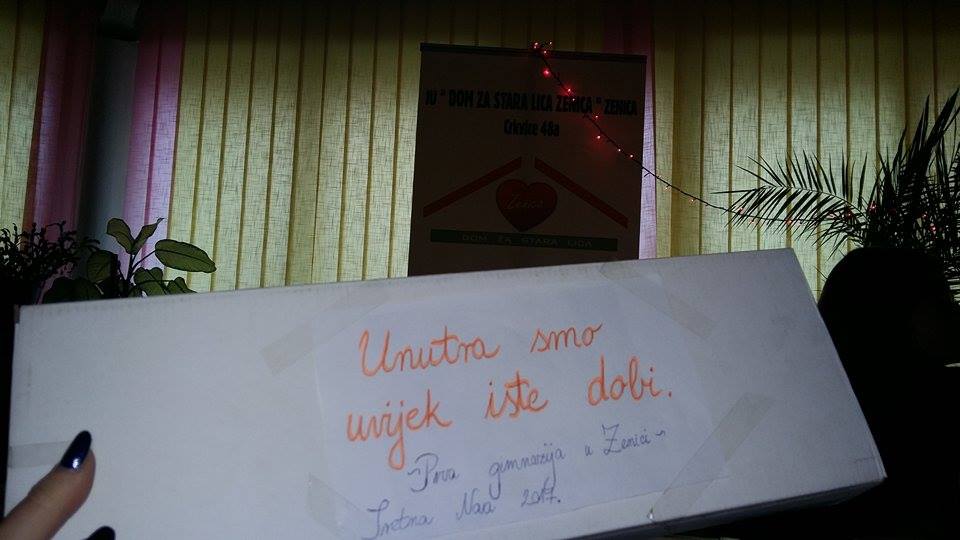 JU " DOM ZA STARA LICA ZENICA " ZENICA
Crkvice 48a
Zenica
DOM ZA STARA LICA
Unutra smo
uvijek iste dobi.
~Prva gimnazija u Zenici~
Sretna Nova 2017.